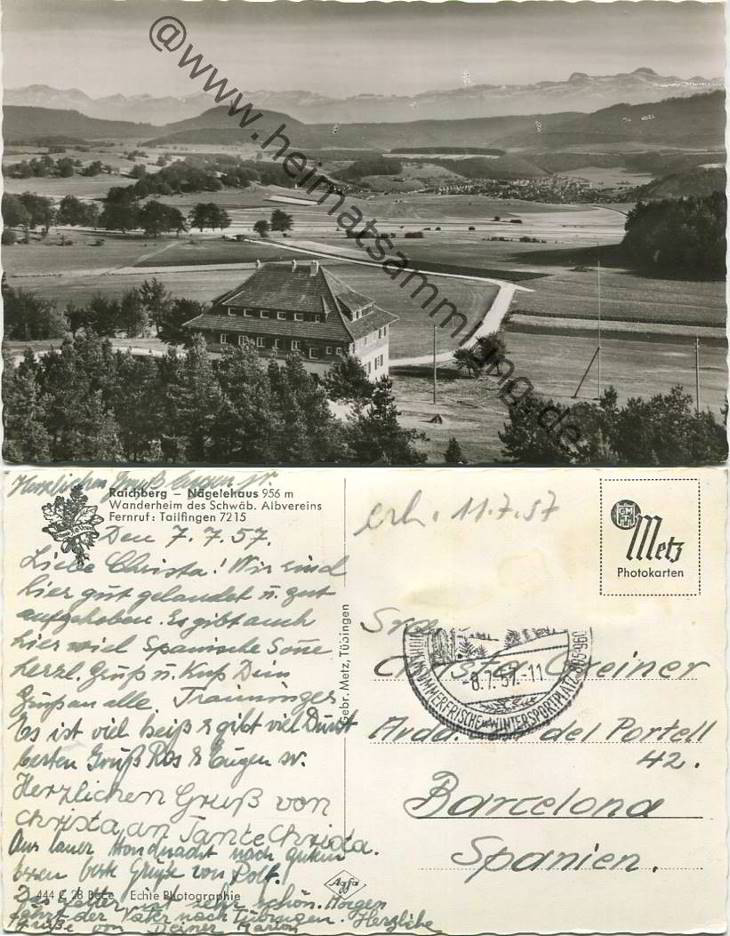 @www.heimatsammlung.de
Herzlichen Gruß Eugen jr.
Raichberg – Nägelehaus 956 m
Wanderheim des Schwäb. Albvereins
Fernruf: Tailfingen 7215
Den 7.7.57.
Liebe Christa! Wir sind
hier gut gelandet u. gut
aufgehoben. Es gibt auch
hier viel Spanische Sone
herzl. Gruß u. Kuß Dein
Gruß an alle.
Es ist viel heiß & gibt viel Durst
besten Gruß Ros & Eugen sr.
Herzlichen Gruß von
Christa an Tante Christa.
Aus lauer Mondnacht nach gutem
Essen beste Grüße von Rolf.
Das Wetter ist sehr schön. Morgen
fährt der Vater nach Tübingen. Herzliche
Grüße von Deiner Marion
444 C 28
Echte Photographie
Agfa
Gebr. Metz, Tübingen
erh. 11.7.57
Metz
Photokarten
8.7.57.-11
SOMMERFRISCHE u. WINTERSPORTPLATZ
Christa Greiner
Avda. del Portell
42.
Barcelona
Spanien.